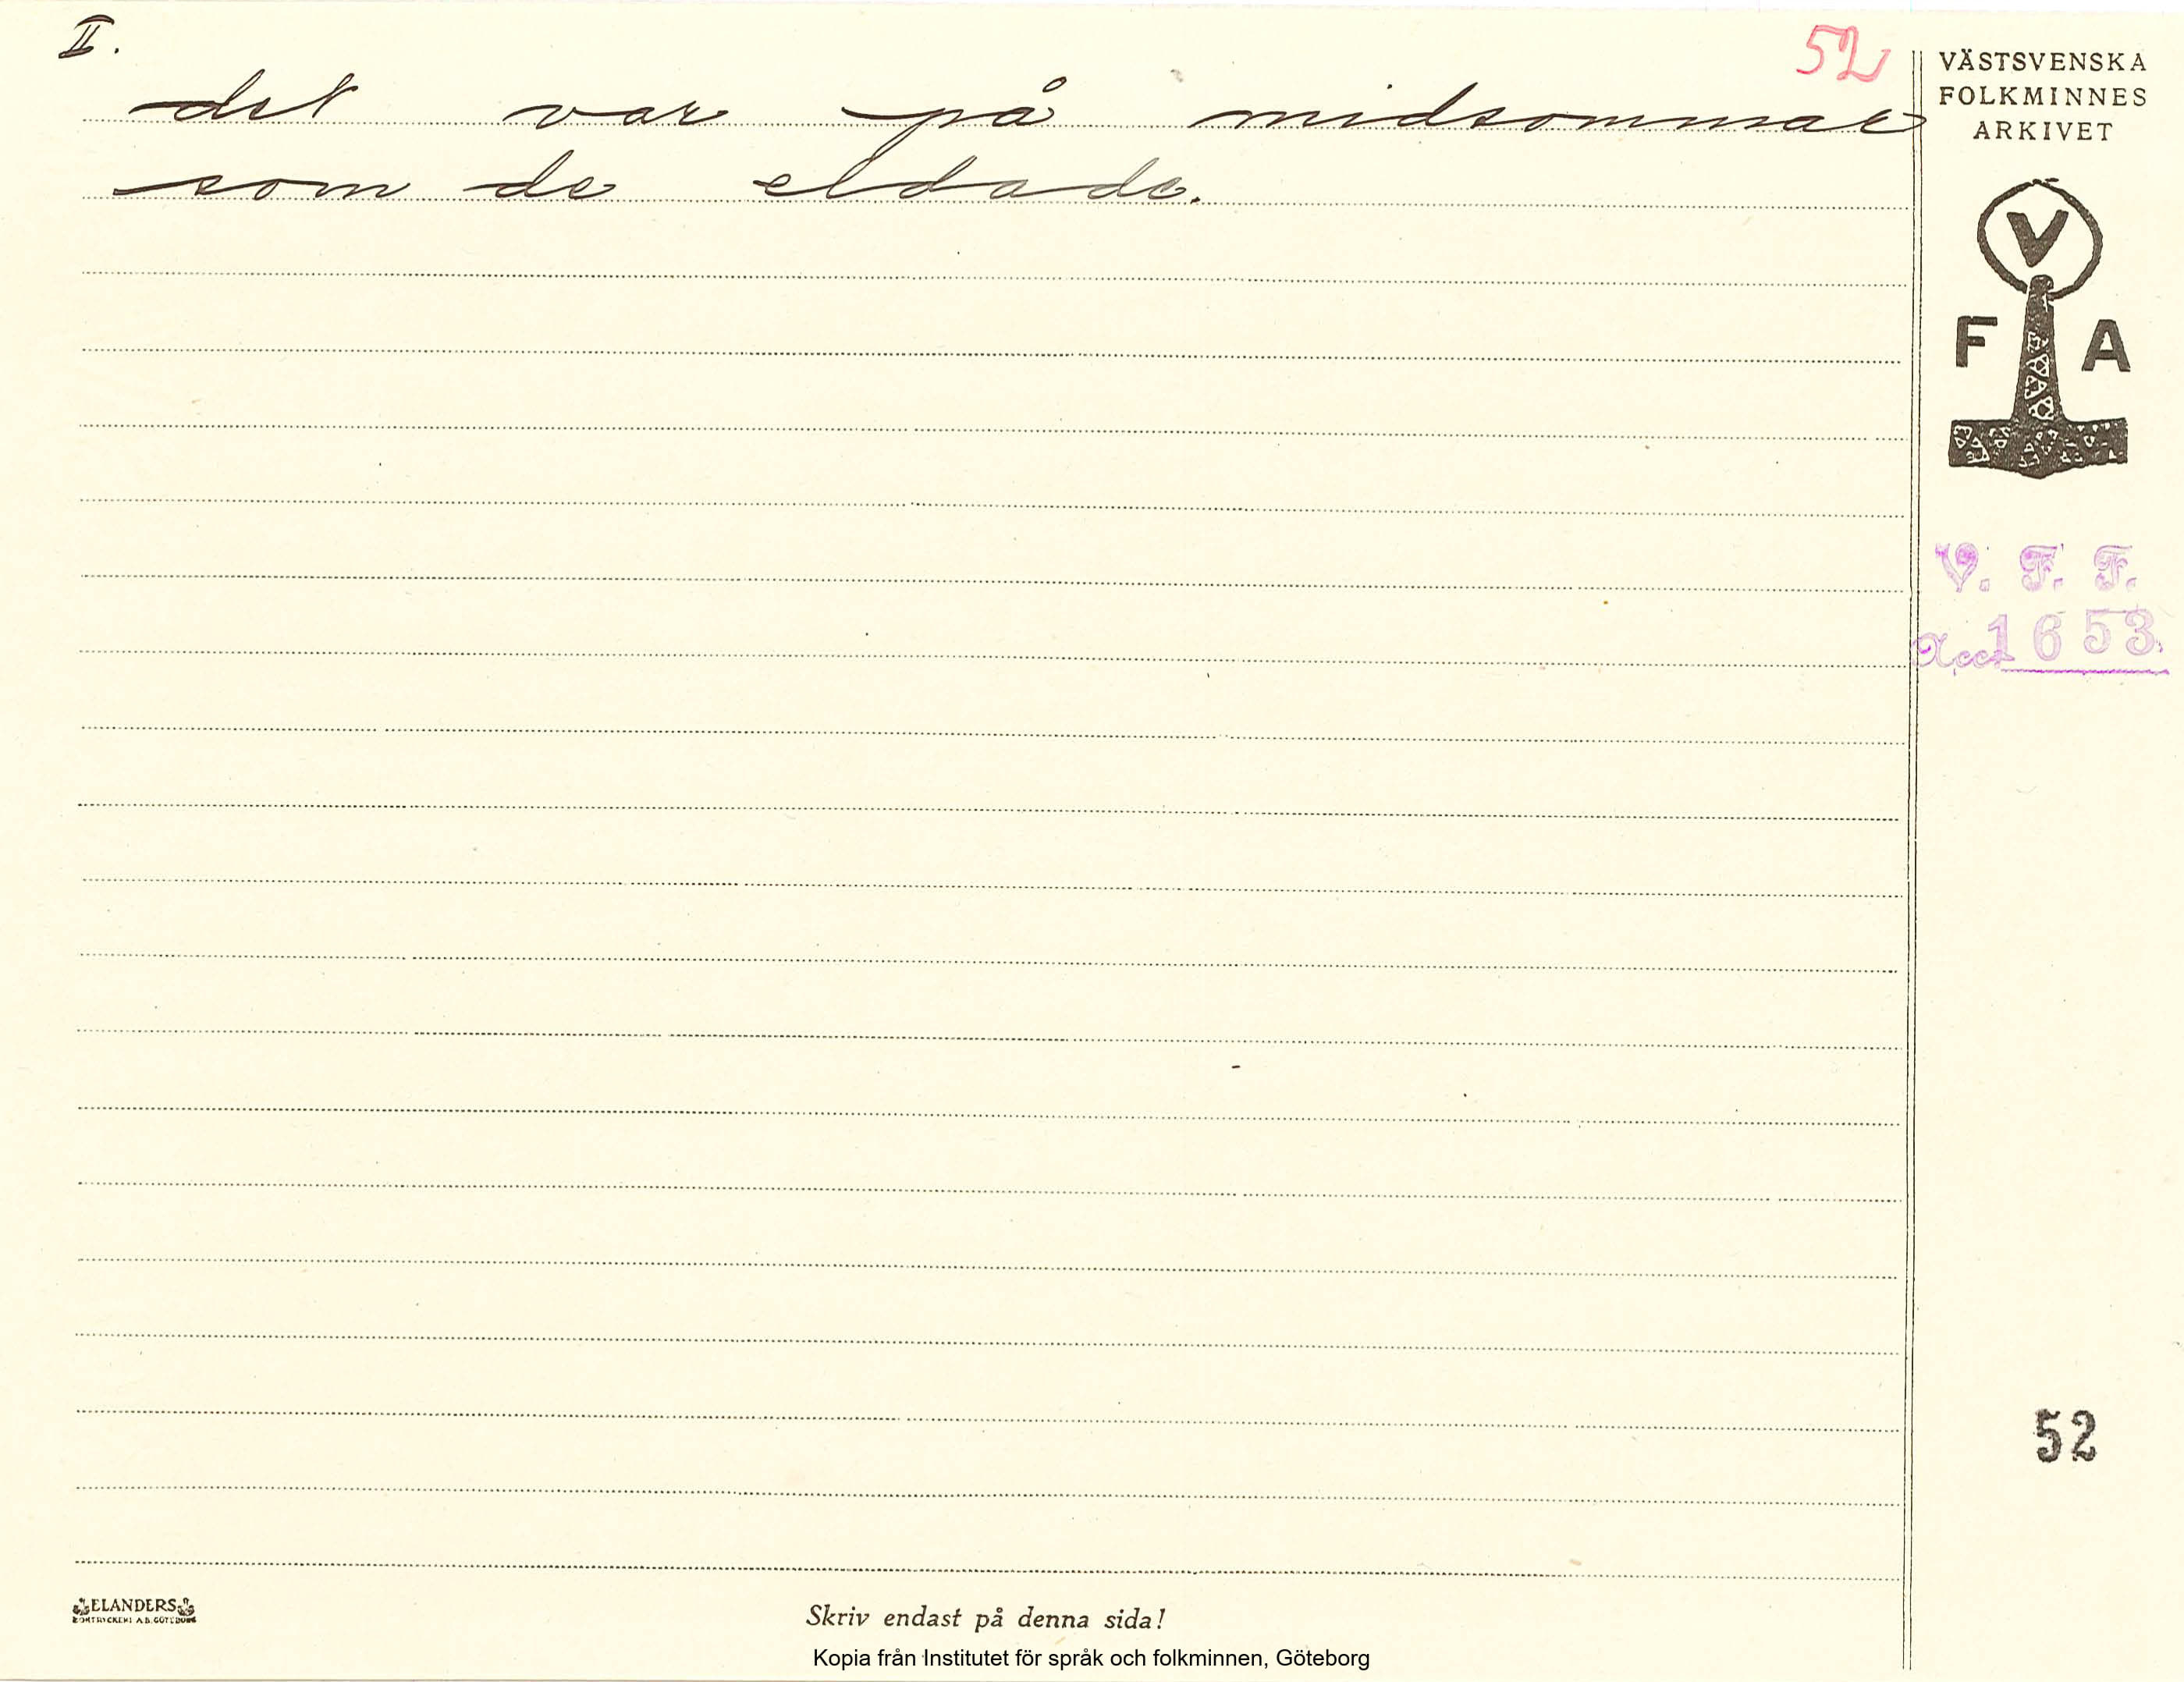 II.
52
det var på midsommar
som de eldade.
VÄSTSVENSKA
FOLKMINNES
ARKIVET
V
F A
V. F. F.
Acc. 1653
52
ELANDERS
BOKTRYCKERI A.B. GÖTEBORG
Skriv endast på denna sida!
Kopia från Institutet för språk och folkminnen, Göteborg